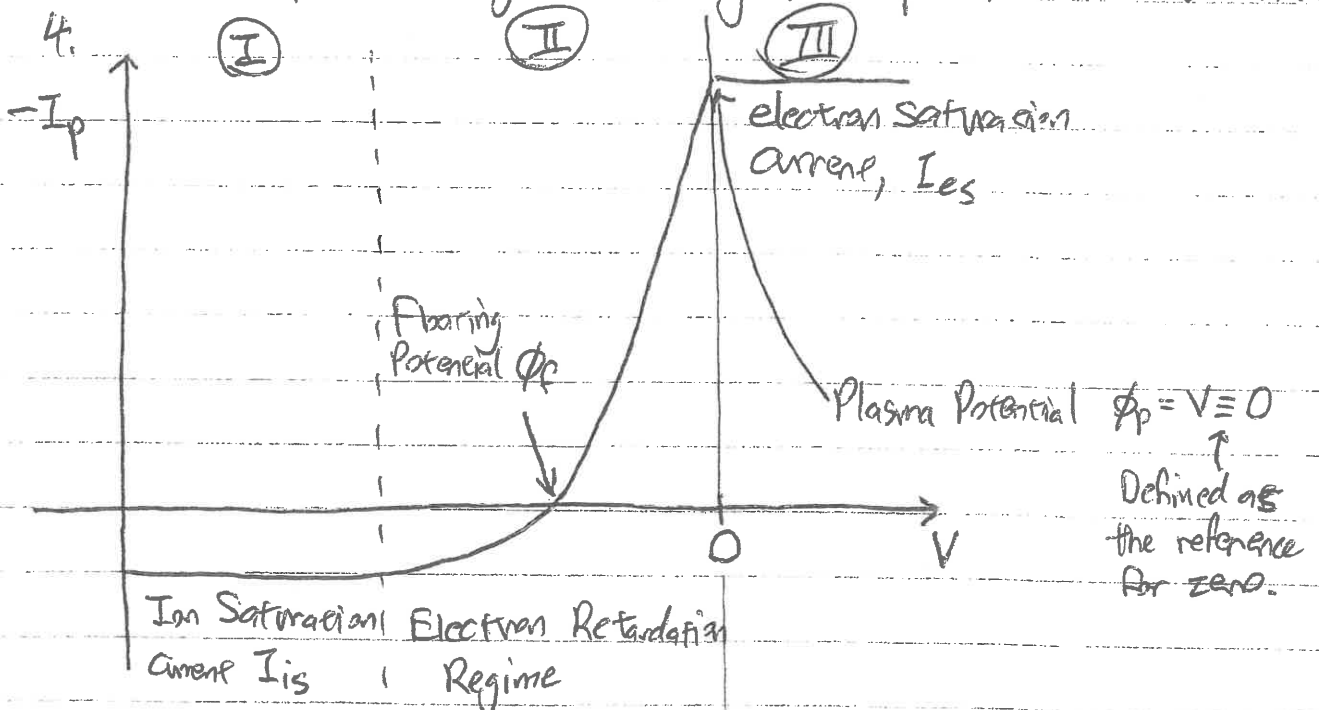 4.
I
II
III
-Ip
electron saturation
current, Ies
Floating
Potential ϕf
Plasma Potential ϕp = V ≡ 0
Defined as
the reference
for zero.
0
V
Ion Saturation
Current Iis
Electron Retardation
Regime